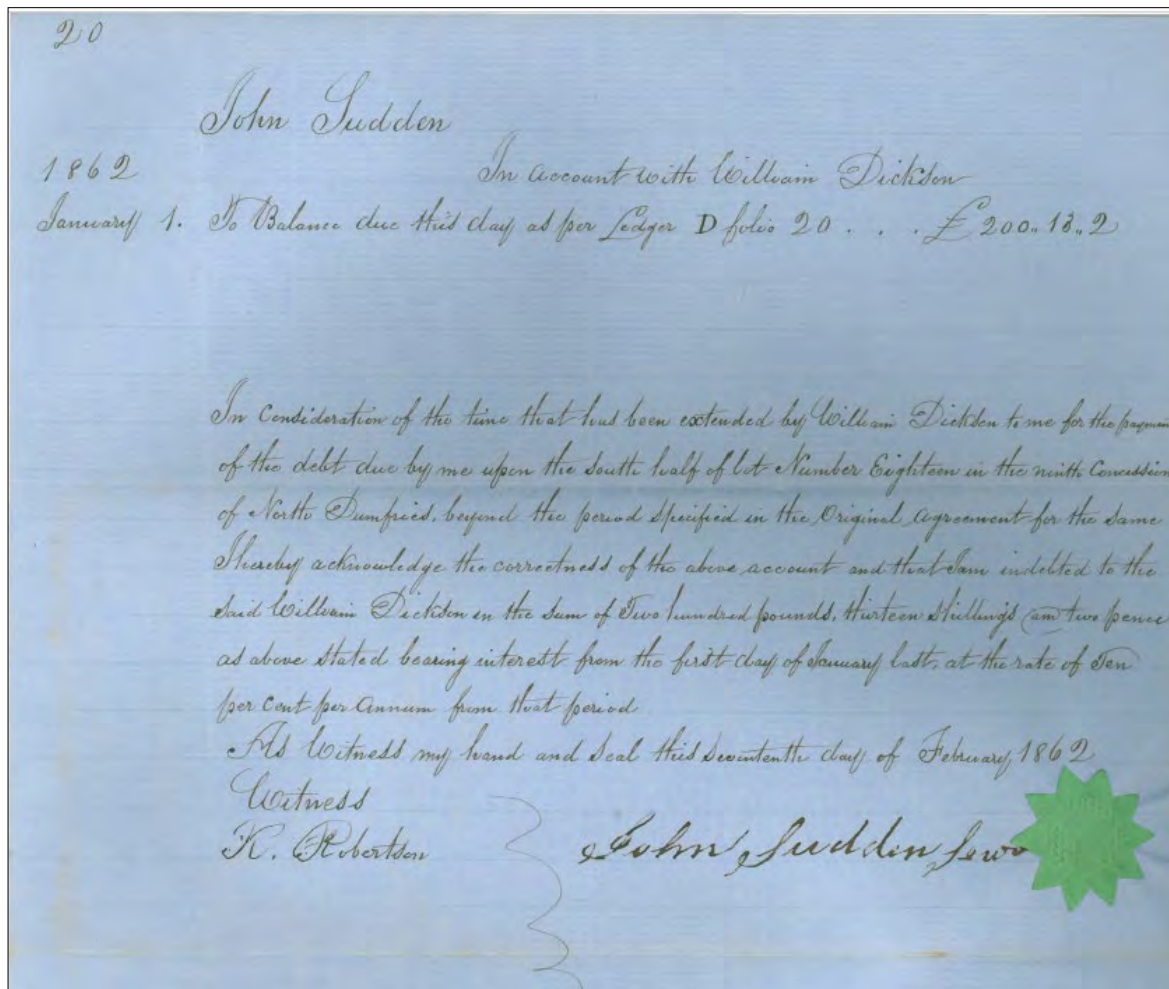 20
John Sudden
1862 In account with William Dickson
January 1. To Balance due this day as per Ledger D folio 20 . . . £ 200.. 13.. 2
In Consideration of the time that has been extended by William Dickson to me for the paymen
of the debt due by me upon the South half of lot Number Eighteen in the ninth Concession
of North Dumfries, beyond the period specified in the Original Agreement for the same
I hereby acknowledge the correctness of the above account and that I am indebted to the
said William Dickson in the sum of Two hundred pounds, thirteen shillings and two pence
as above stated bearing interest from the first day of January last, at the rate of Ten
per cent per Annum from that period
As Witness my hand and Seal this seventeenth day of February 1862
Witness
K. Robertson John Sudden